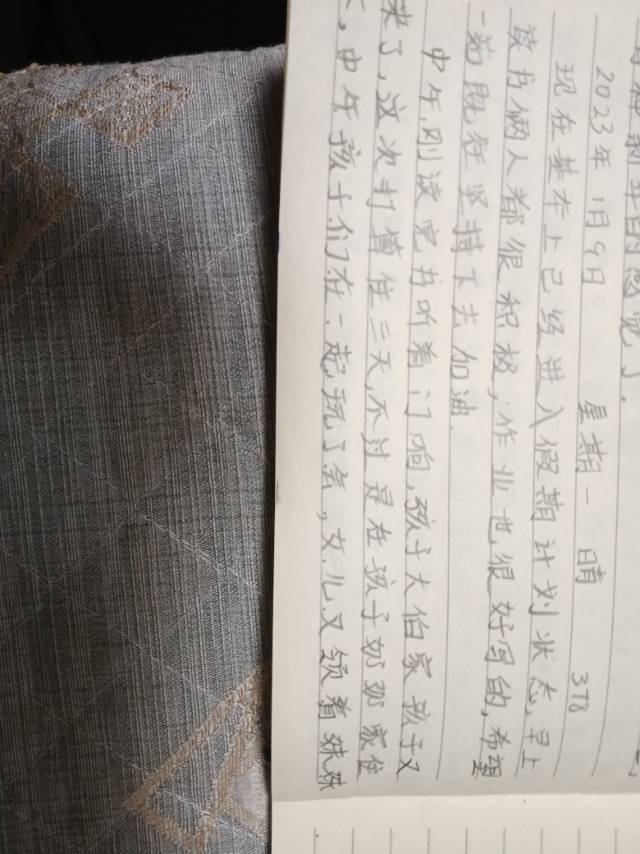 的感觉了.
2023年1月9日 星期一 晴 3T8
现在基本上已经进入假期计划状态,早上
读书俩人都很积极,作业也很好写的,希望
一如既往坚持下去加油.
中午,刚读完书听着门响,孩子大伯家孩子又
来了,这次打算住三天,不过是在孩子奶奶家住
中午孩子们在一起玩了会,女儿又领着妹妹